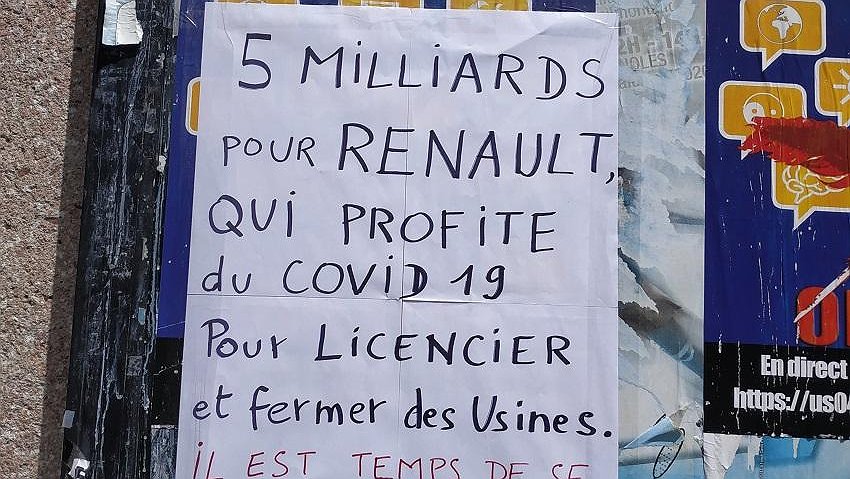 5 MiLLiARDS
POUR RENAULT,
QUi PROFiTE
du COViD 19
Pour LiCENCiER
et fermer des Usines.
iL EST TEMPS DE SE
En direct
https://us04